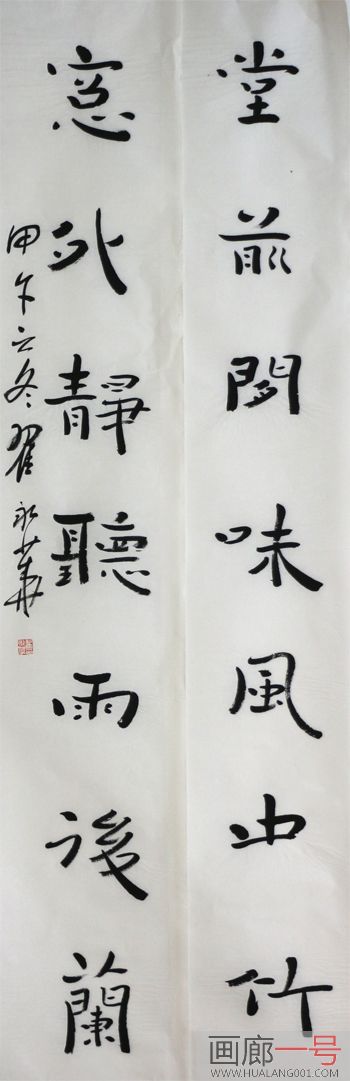 堂前閑味風中竹
窓外靜聽雨後蘭
甲午之冬翟永華
画廊一号
WWW.HUALANG001.COM